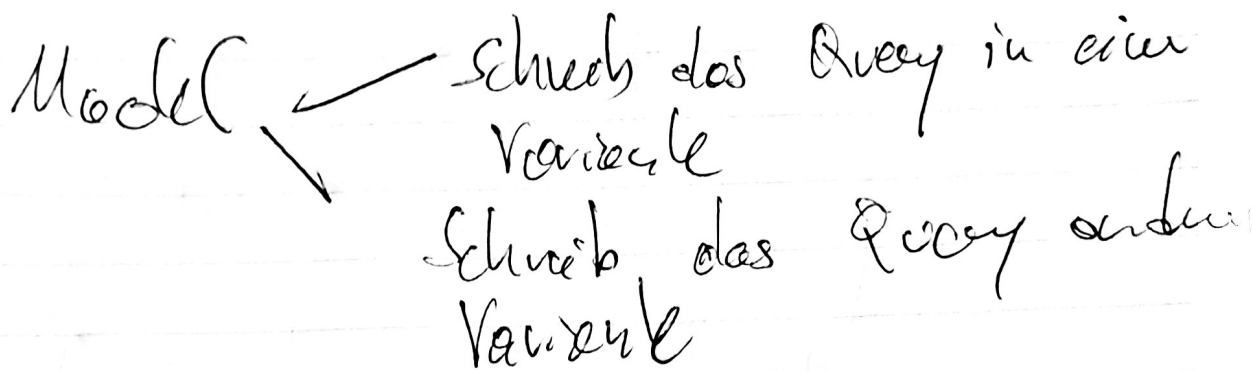 Model Schreib das Query in einer
Variante
Schreib das Query ander
Variante